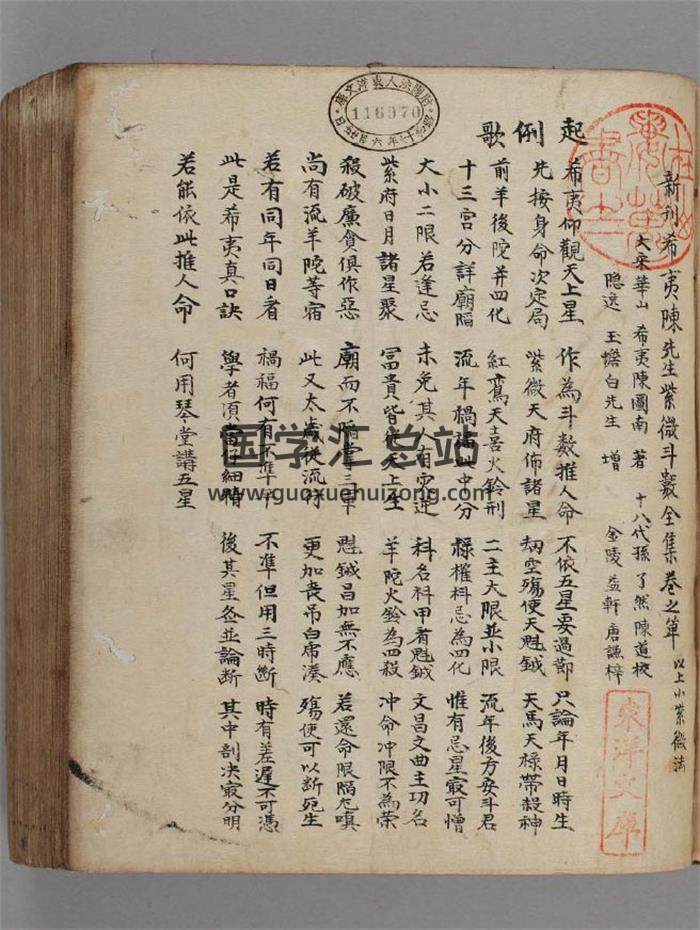 新刊希夷陳先生紫微斗數全集卷之 以上小紫微法
大宋華山 希夷陳圖南 著 十八代孫 了然陳道 校
隐逸 玉蟾白先生 增 金陵 益軒 唐謙 梓
起例歌
希夷仰觀天上星 作為斗數推人命 不依五星要過節 只論年月日時生
先按身命次定局 紫微天府佈諸星 劫空殤使天魁鉞 天馬天祿帶殺神
前羊後陀并四化 紅鸞天喜火鈴刑 二主大限並小限 流年後方安斗君
十三宮分詳廟陷 流年禍福此中分 祿權科忌為四化 惟有忌星最可憎
大小二限若逢忌 未免其人有災迍 科名科甲看魁鉞 文昌文曲主功名
紫府日月諸星聚 富貴皆從天上生 羊陀火鈴為四殺 冲命冲限不為榮
殺破廉貪俱作惡 廟而不陷掌三軍 魁鉞昌加無不應 若還命限陷尤嗔
尚有流羊陀等宿 此又太歲從流行 更加喪吊白席湊 殤使可以斷死生
若有同年同日看 禍福何有不準 不準但用三時斷 時有差遲不可憑
此是希夷真口訣 學者須當仔細 後其星並論斷 其中剖決最分明
若能依此推人命 何用琴堂講五星
財團法人東洋文庫
116970
東洋文庫
国学汇总站
www.guoxuehuizong.com